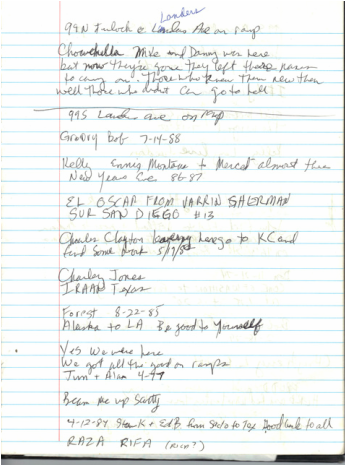 Landers
99N Turlock & Landers Ave on ramp
Chowchilla Mike and Danny was here
but now they're gone they left there names
to carry on. Those who knew them new them
well Those who didnt can go to hell
99S Landers ave on ramp
Groovy Bob 7-14-88
Kelly Ennis Montana to Merced almost there
New Years Ca 86-87
EL OSCAR FROM VARRIN SHERMAN
SUR SAN DIEGO #13
Charles Clayton leaving here go to KC and
find some work 5/7/85
Charley Jones
IRAAN Texas
Forrest 8-22-85
Alaska to LA Be good to yourself
Yes We were here
We got all the good on ramps
Jim + Alan 4-77
Beam me up Scotty
4-12-84 K + Ed B from Sto to Tex Good luck to all
RAZA RIFA (RICH?)